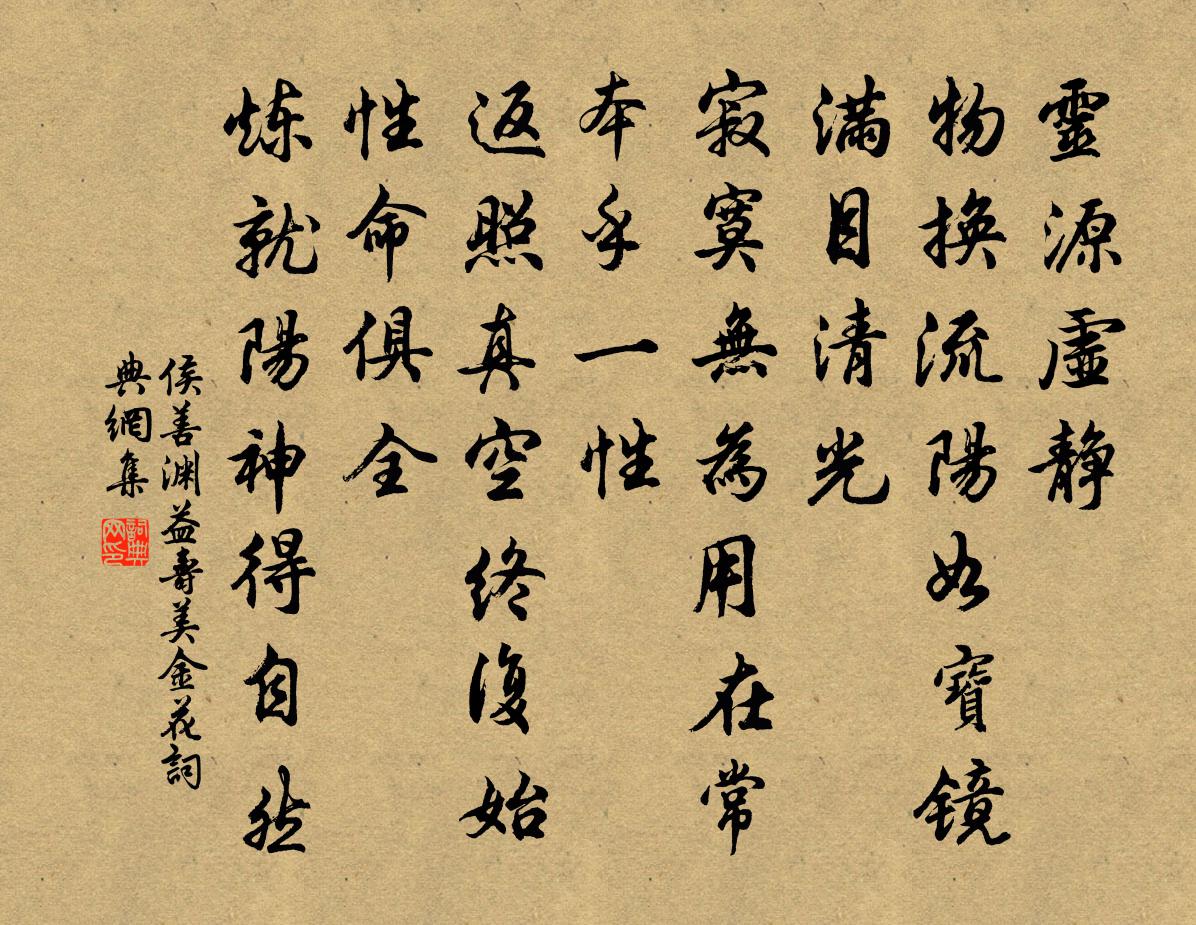 靈源虛静
物換流陽如寶鏡
滿目清光
寂寞無為用在常
本乎一性
返照真空终復始
性命俱全
炼就陽神得自然
侯善渊益壽美金花詞
典網集
詞典网印